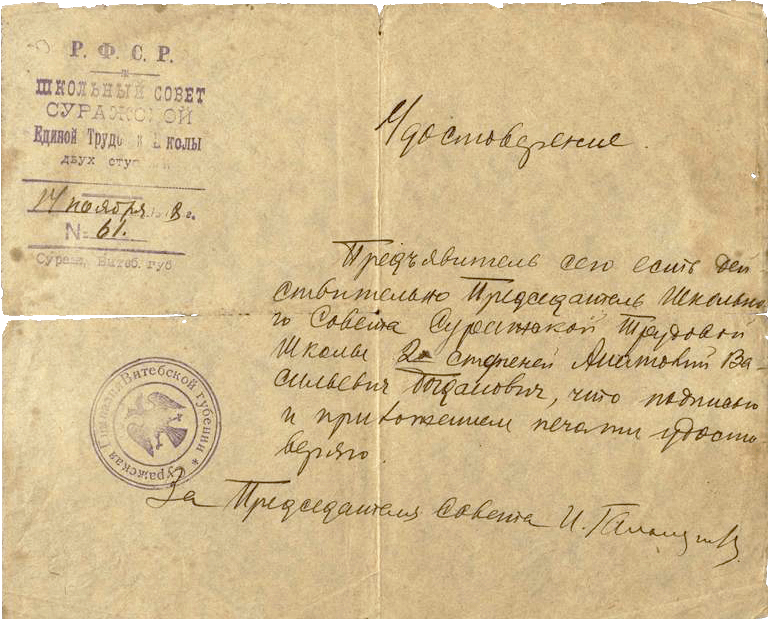 Р. Ф. С. Р.
ШКОЛЬНЫЙ СОВЕТ
СУРАЖСКОЙ
Единой Трудо й Школы
двух сту и
14 ноября 8 г.
№ 61.
Сураж, Витеб. губ
Удостоверение.
Предъявитель сего есть дей-
ствительно Председатель Школьно-
го Совета Суражской Трудовой
Школы 2х ступеней Анатолий Ва-
сильевич Богданович, что подписью
и приложением печати удосто
веряю.
За Председателя Совета И.
Суражская Гимназия Витебской губернии *